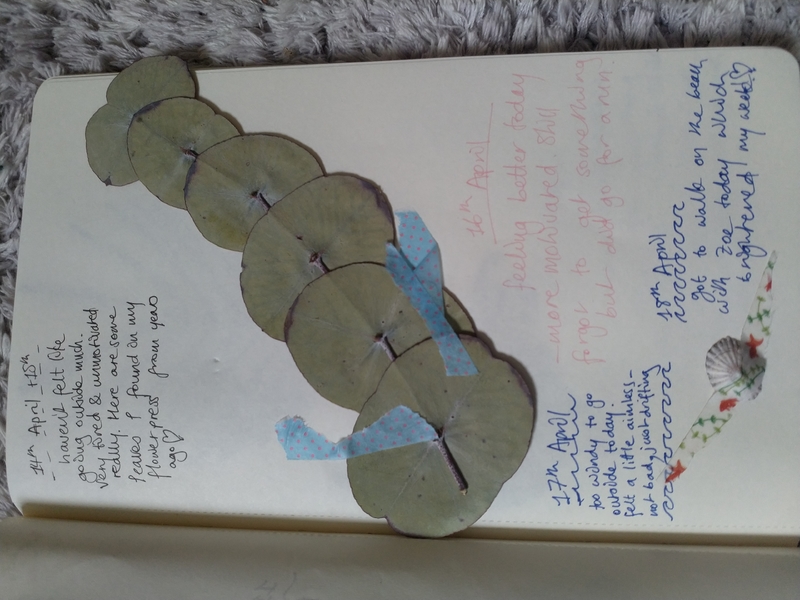 - 14th April + 15th -
haven't felt like
going outside much.
Very tired & unmotivated
really. Here are some
leaves I found in my
flowerpress from years
ago ♡
16th April
feeling better today
- more motivated. Still
forgot to get something
but did go for a run!
17th April
too windy to go
outside today.
felt a little aimless -
not bad, just drifting
18th April
got to walk on the beach
with Zoe today which
brightened my week! ♡